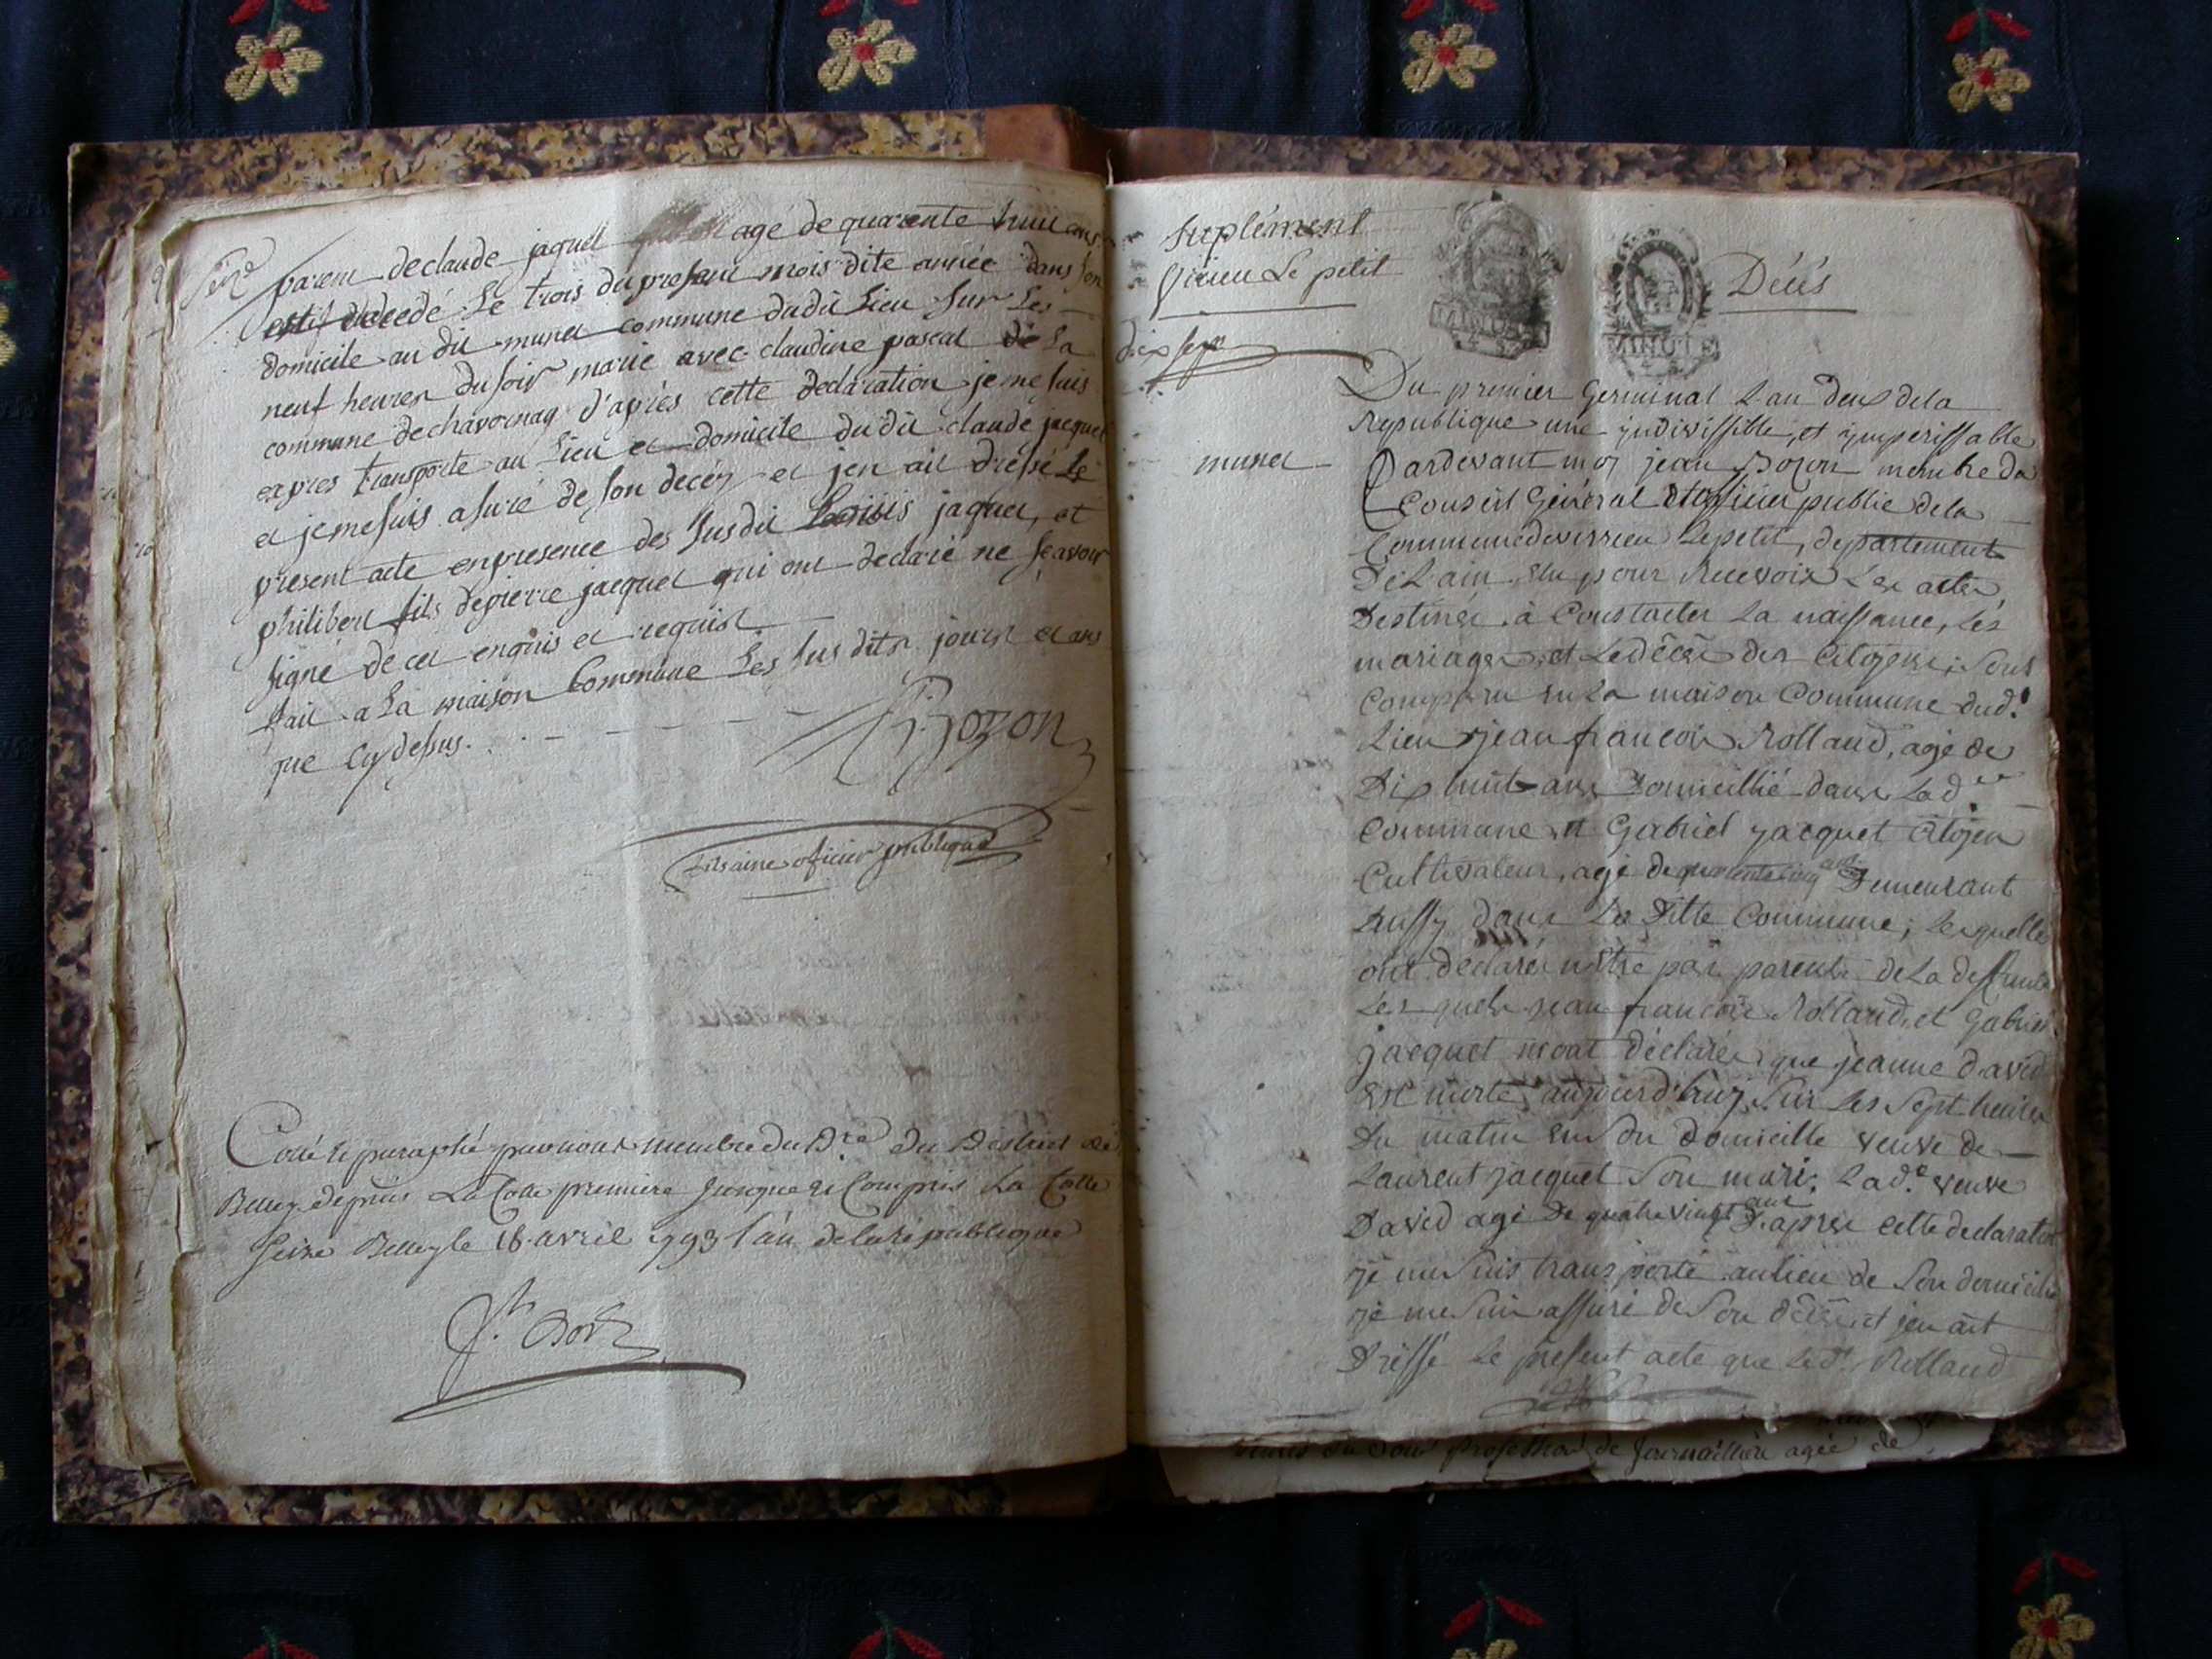 parent de claude jaquet agé de quarente huit ans
est décédé le trois du present mois dite année dans son
domicile au dit munet commune dudit Lieu sur les
neuf heures du soir marié avec claudine pascal de La
commune de chavornay d'après cette declaration je me suis
expres transporte au Lieu et domicile du dit claude jacquet
et je me suis asuré de son decéz et jen ait dressé Le
present acte en presence des susdit jaquet, et
philibert fils de pierre jacquet qui ont declaré ne scavoir
signé de cet enquis et requist
fait a La maison Commune Les sus dits jours et ans
que cy dessus.
J. Bozon
fils ainé officier publique
Cotté et paraphé par nous membre du D.re du District de
Belley depuis La Cotte premiere jusques et Compris La Cotte
Seize Belley le 18 avril 1793 l'an de la republique
Suplément
Virieu Le petit
Décés
MINUTE
MINUTE
dix sept
Du premier Germinal L'an deux de la
Republique une indivissible, et imperissable
munet
Pardevant moy jean Bozon membre du
Conseil Général et officier public de la
Commune de virrieu Le petit, departement
De L'ain élu pour Recevoir Les actes
Destinés à Constater La naissance, Les
mariages et Le décès des Citoyens; Sont
Comparu en La maison Commune dud.t
Lieu jean françois Rolland, agé de
Dix huit ans Domicillié dans La d.te
Commune et Gabriel jacquet Citoyen
Cultivateur, agé de quarente cinq ans Demeurant
aussy dans La ditte Commune; Lesquelles
ont declarés n'être pas parents de La deffunte
Lesquels jean francois Rolland, et Gabriel
jacquet mont déclarés que jeanne David
est morte aujourd'huy Sur Les Sept heures
Du matin en Son Domicille veuve de
Laurent jacquet Son mari. La d.e veuve
David agé de quatre vingt ans D'après cette declaration
je me Suis transporté au lieu de Son domicille
je me Suis assuré de Son décès et jen ait
Dressé Le present acte que Le d.t Rolland
de agée de